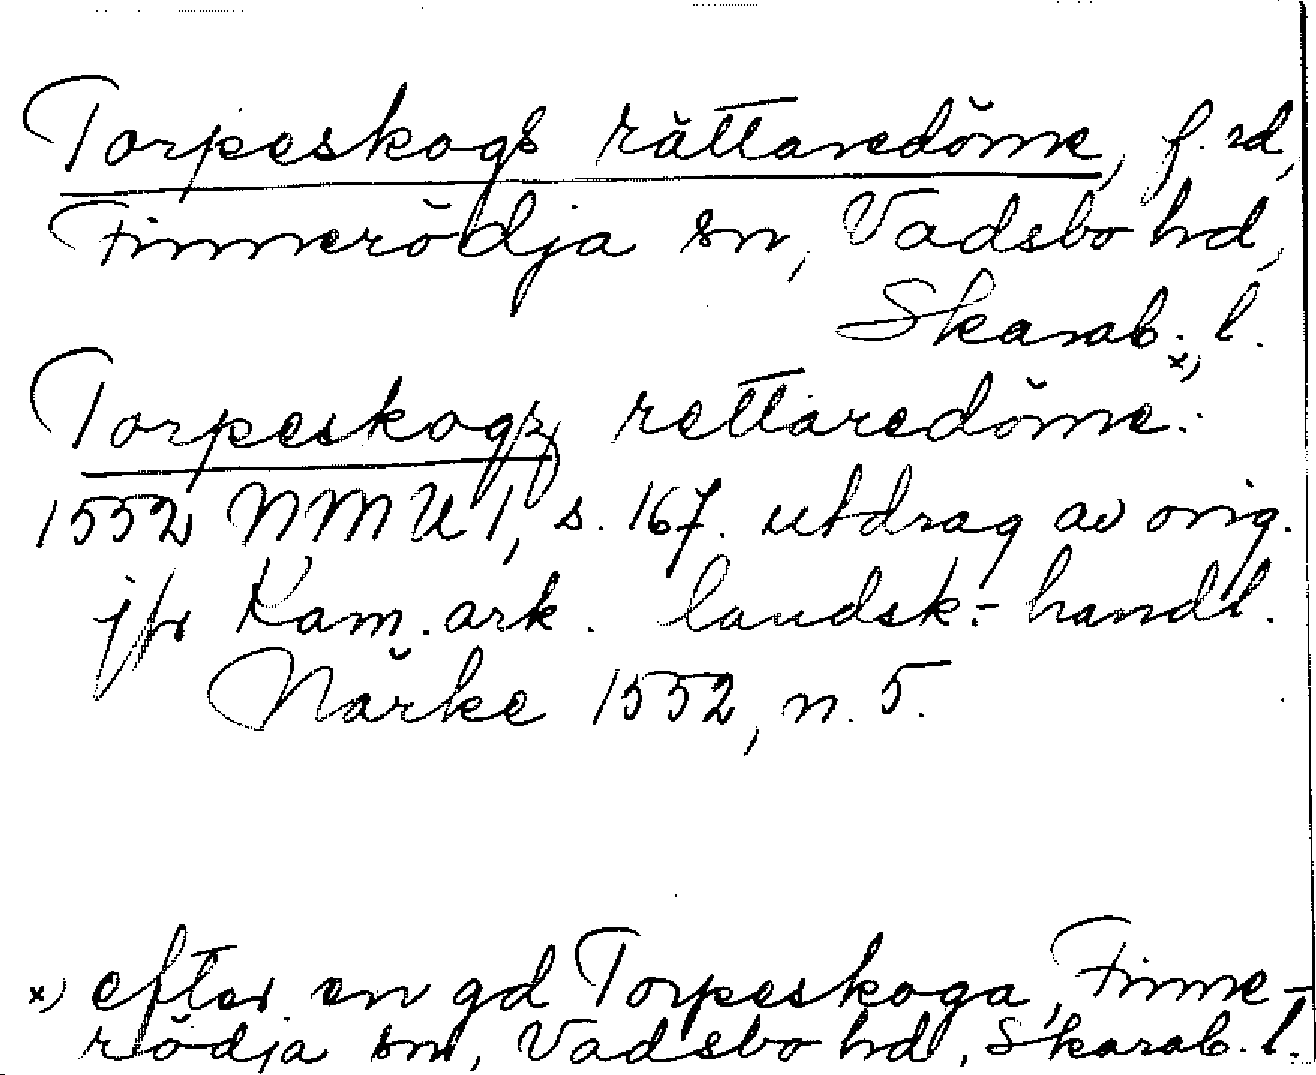 Torpeskogs rättaredöme, f.rd,
Finnerödja sn, Vadsbo hd,
Skarab. l.
Torpeskogz rettaredöme. x)
1552 NMU 1, s. 167. utdrag av orig.
jfr Kam.ark. landsk.-handl.
Närke 1552, n. 5.
x) efter en gd Torpeskoga, Finne-
rödja sn, Vadsbo hd, Skarab. l.